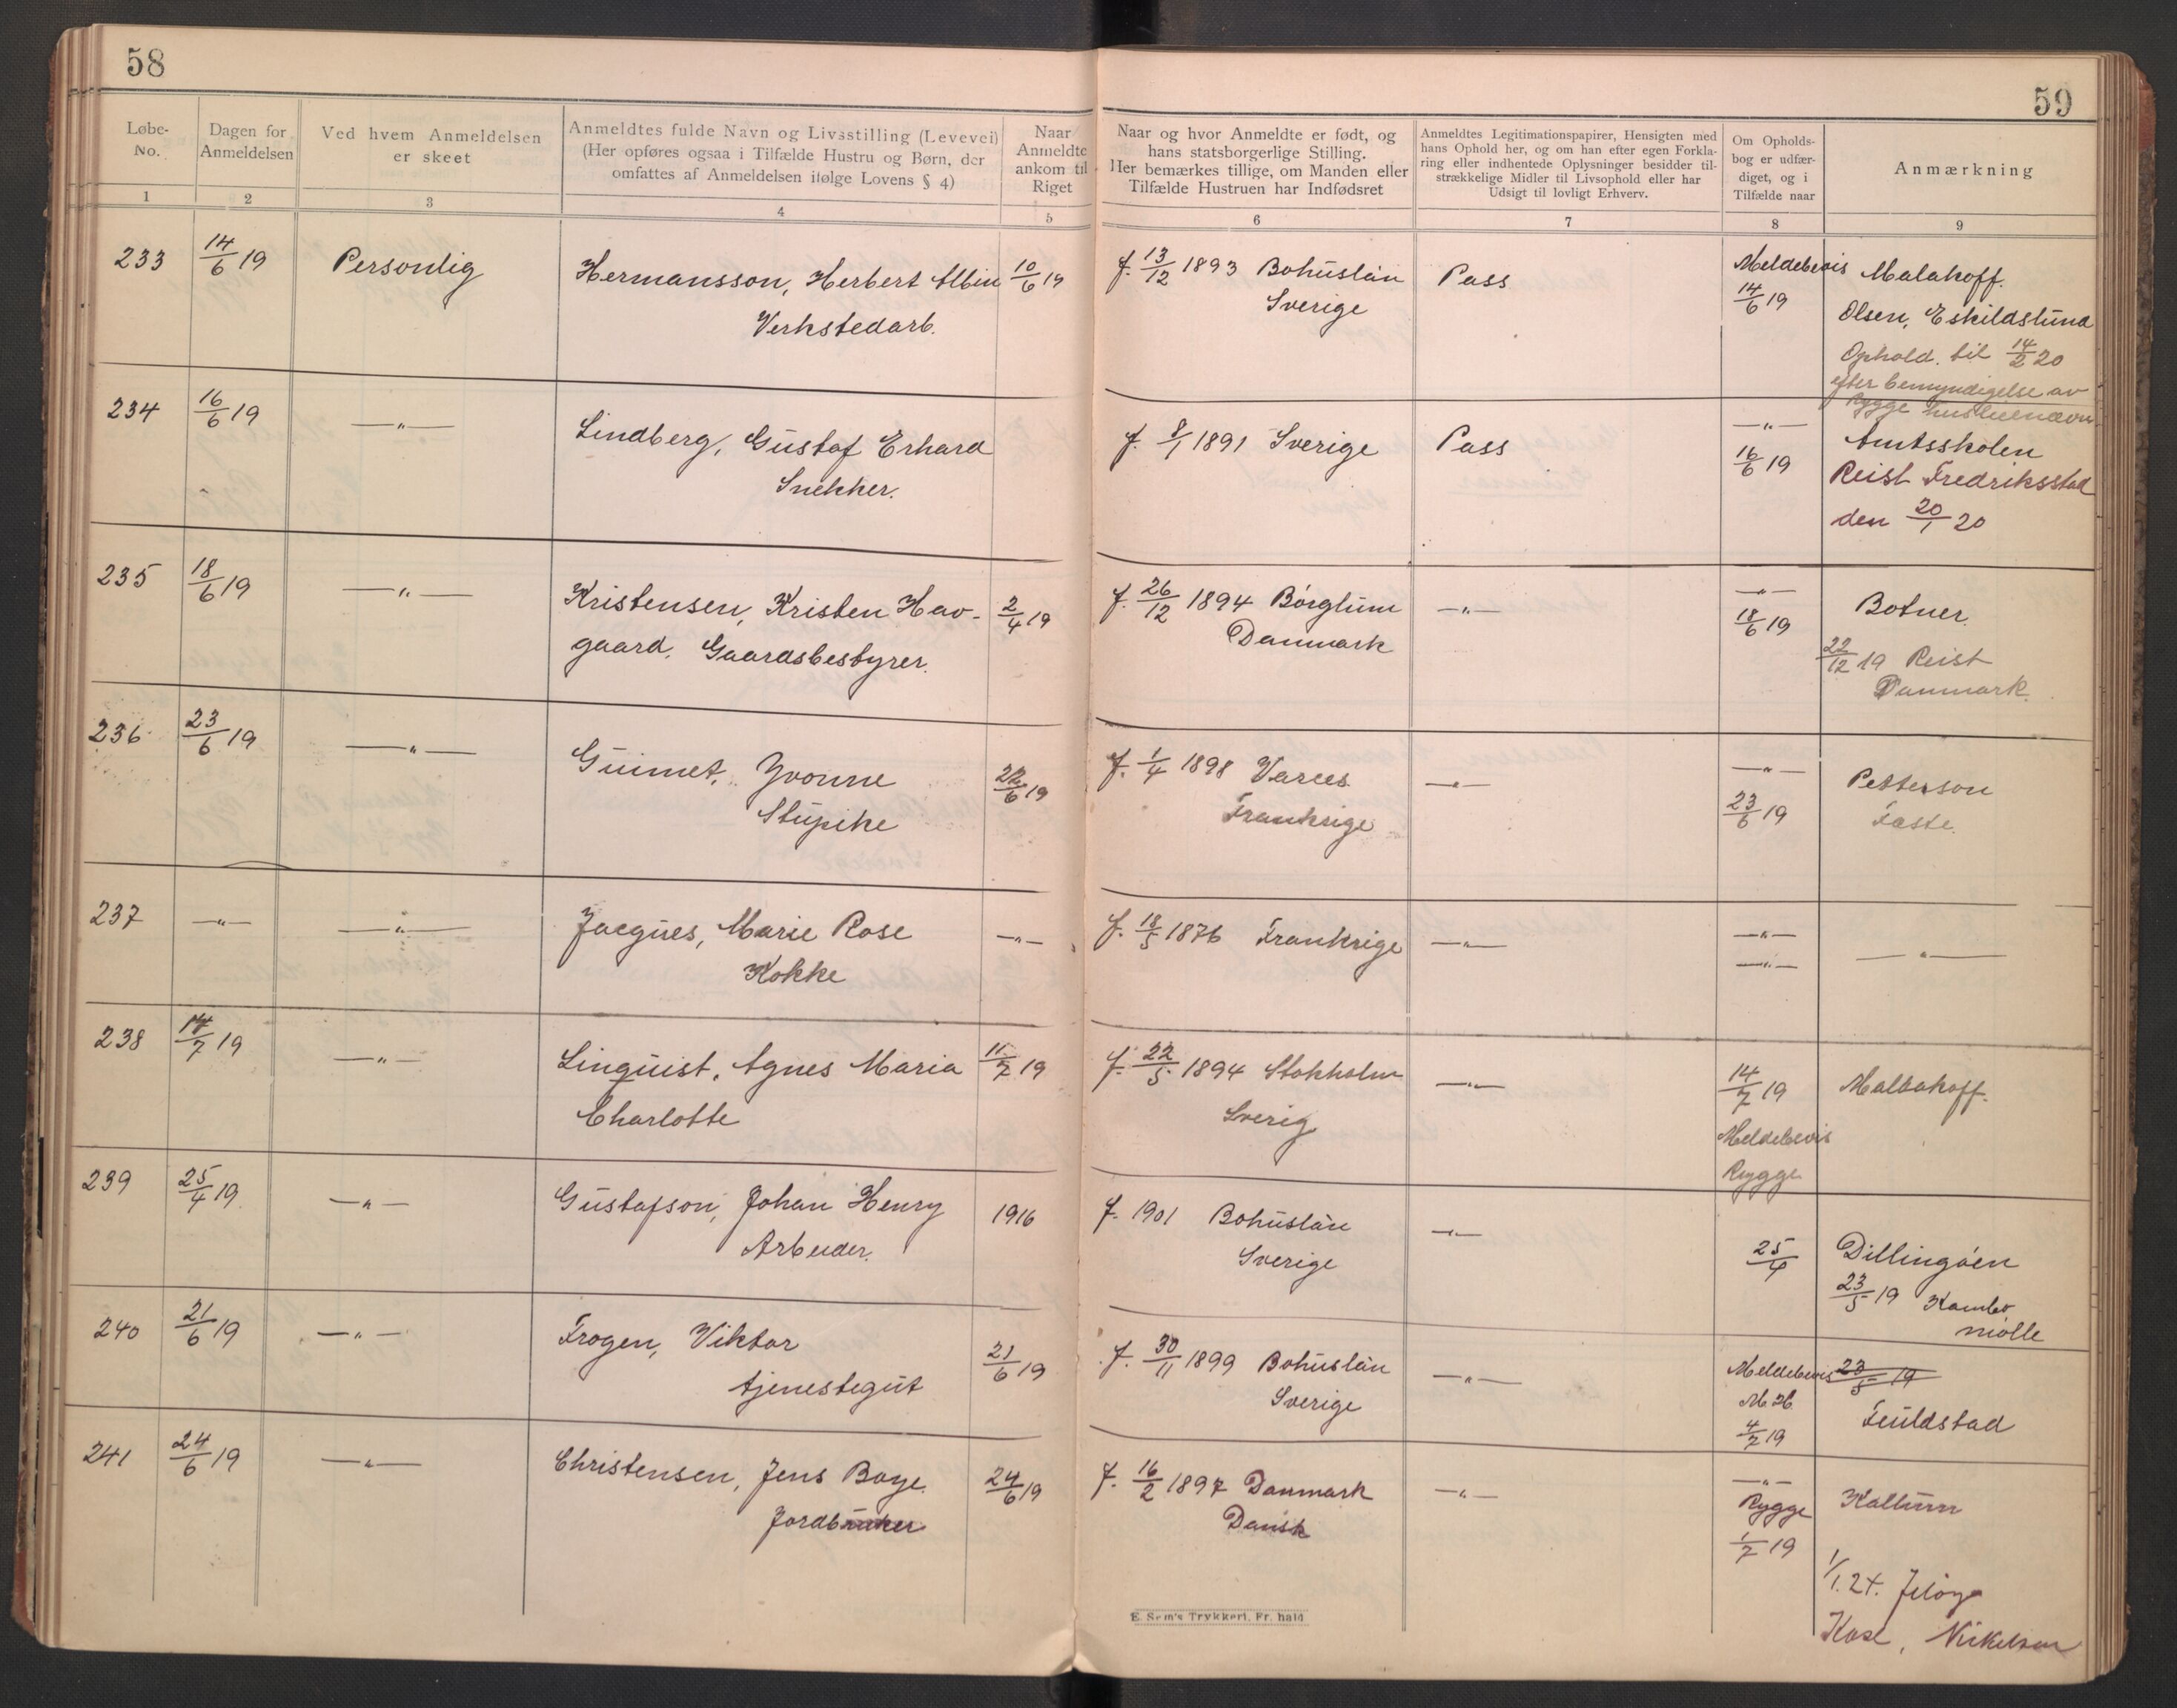 58
59
Løbe-
No.
Dagen for
Anmeldelsen
Ved hvem Anmeldelsen
er skeet
Anmeldtes fulde Navn og Livsstilling (Levevei)
(Her opføres ogsaa i Tilfælde Hustru og Børn, der
omfattes af Anmeldelsen ifølge Lovens § 4)
Naar
Anmeldte
ankom til
Riget
Naar og hvor Anmeldte er født, og
hans statsborgerlige Stilling.
Her bemærkes tillige, om Manden eller
Tilfælde Hustruen har Indfødsret
Anmeldtes Legitimationspapirer, Hensigten med
hans Ophold her, og om han efter egen Forkla-
ring eller indhentede Oplysninger besidder til-
strækkelige Midler til Livsophold eller har
Udsigt til lovligt Erhverv.
Om Opholds-
bog er udfær-
diget, og i
Tilfælde naar
Anmærkning
1 2 3 4 5 6 7 8 9
233 14/6 19 Personlig Hermansson, Herbert Albin 10/6 19 f. 13/12 1893 Bohuslän Pass Meldebevis Malakoff.
Verkstedarb. Sverige 14/6 19 Olsen, Eskildslund
Ophold. til 14/2 20
efter bemyndigelse av
Rygge husleienævn
234 16/6 19 —„— Lindberg, Gustaf Erhard f. 8/1 1891 Sverige Pass —„— Amtsskolen
Snekker. 16/6 19 Reist Fredriksstad
den 20/1 20
235 18/6 19 —„— Kristensen, Kristen Hav- 2/4 19 f. 26/12 1894 Börglum —„— —„— Botner.
gaard. Gaardsbestyrer. Danmark 18/6 19
22/12 19 Reist
Danmark.
236 23/6 19 —„— Guimet, Yvonne 22/6 19 f. 1/4 1898 Varces —„— —„— Petterson
Stupike Frankrige 23/6 19 Faste.
237 —„— —„— Jacques, Marie Rose —„— f. 18/5 1876 Frankrige —„— —„— —„—
Kokke —„—
238 14/7 19 —„— Linquist, Agnes Maria 11/7 19 f. 22/5 1894 Stokholm —„— 14/7 19 Mallakoff.
Charlotte Sverig Meldebevis
Rygge
239 25/4 19 —„— Gustafson, Johan Henry 1916 f. 1901 Bohuslän —„— 25/4 Dillingöen
Arbeider. Sverige 23/5 19 Kambo
mölle
240 21/6 19 —„— Frogen, Viktor 21/6 19 f. 30/11 1899 Bohuslän —„— Meldebevis 23/5 19
tjenestegut Sverige 4/7 19
241 24/6 19 —„— Christensen, Jens Boye. 24/6 19 f. 16/2 1897 Danmark —„— —„— Kallum
Jordbruker Dansk Rygge
1/7 19
1/1. 24. Jeløya
E. Sem's Trykkeri, Fr. hald